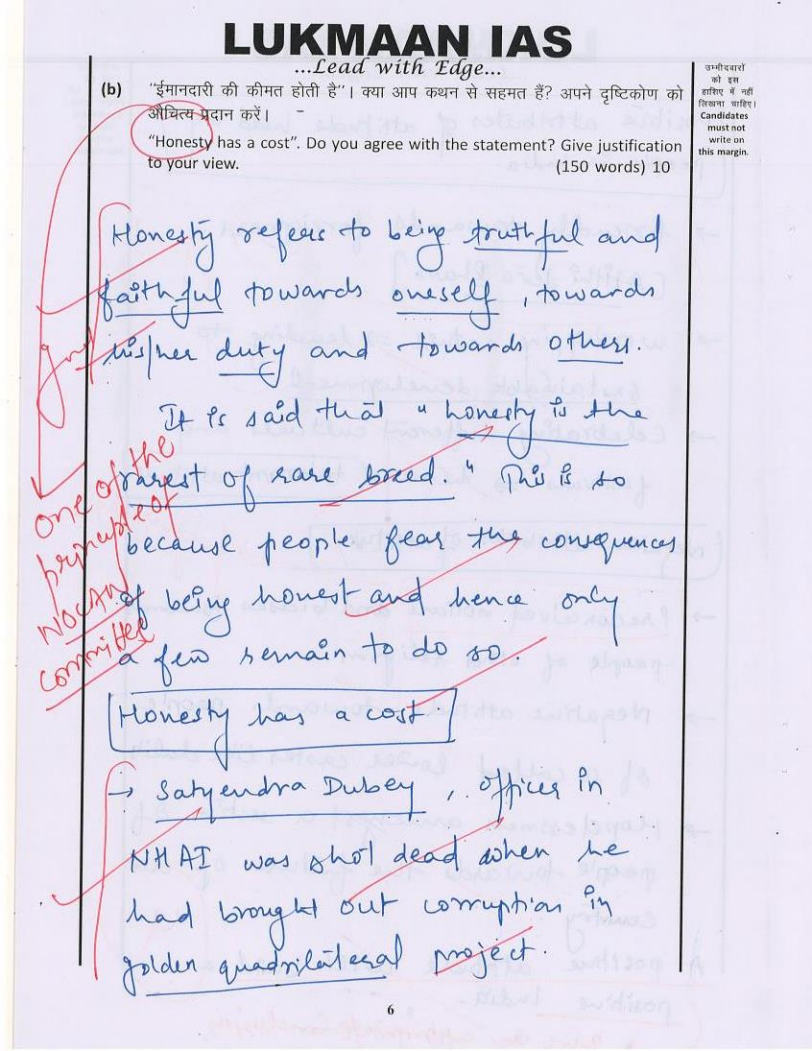 LUKMAAN IAS
...Lead with Edge...
उम्मीदवारों
को इस
हाशिए में नहीं
लिखना चाहिए।
Candidates
must not
write on
this margin.
(b) "ईमानदारी की कीमत होती है"। क्या आप कथन से सहमत हैं? अपने दृष्टिकोण को
औचित्य प्रदान करें।
"Honesty has a cost". Do you agree with the statement? Give justification
to your view. (150 words) 10
Honesty refers to being truthful and
faithful towards oneself, towards
his/her duty and towards others.
It is said that "honesty is the
rarest of rare breed." This is so
because people fear the consequences
of being honest and hence only
a few remain to do so.
One of the
principle of
NOLAN
committee
Honesty has a cost
→ Satyendra Dubey, officer in
NHAI was shot dead when he
had brought out corruption in
golden quadrilateral project.
6